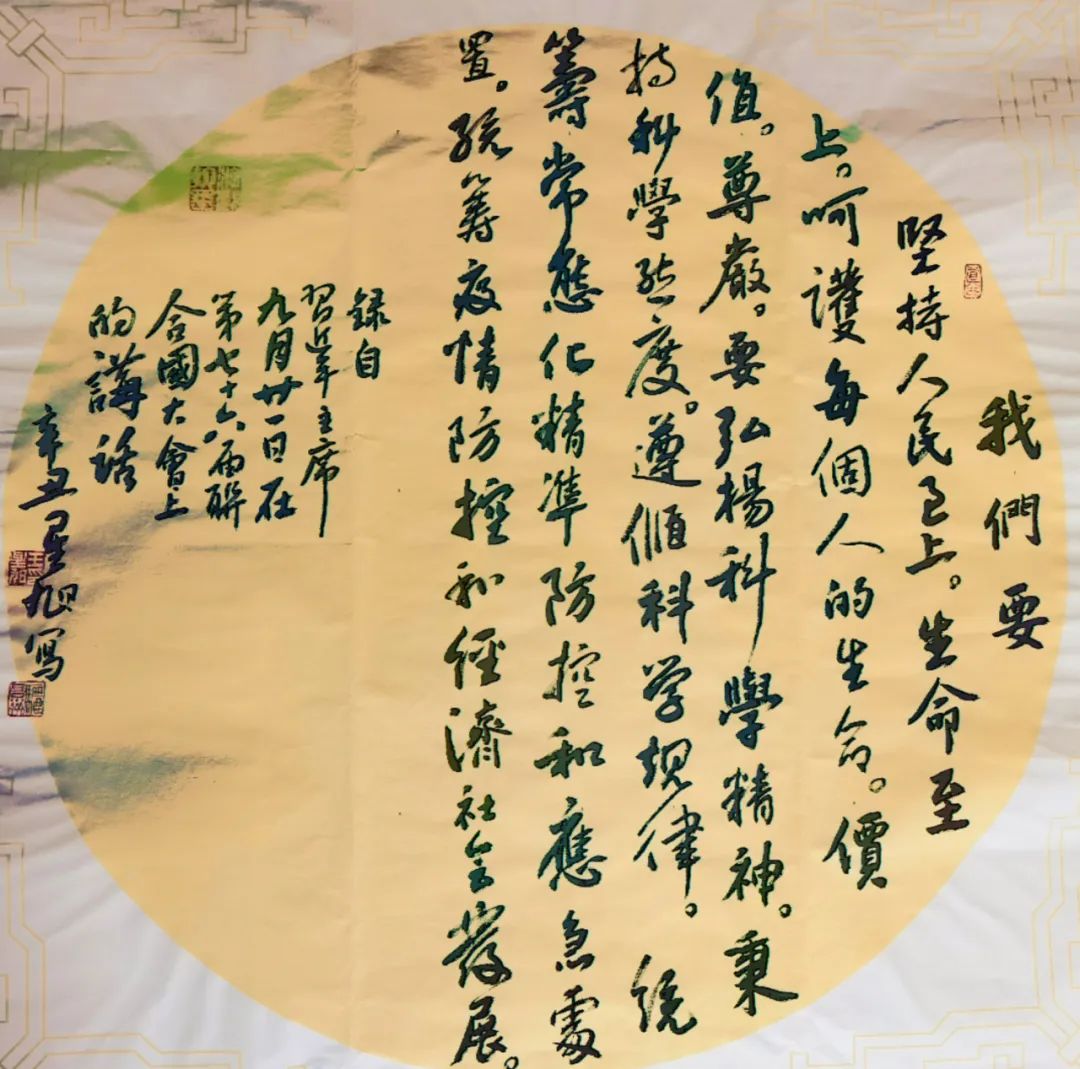 我們要
堅持人民至上。生命至
上。呵護每個人的生命。價
值。尊嚴。要弘揚科學精神。秉
持科學態度。遵循科学規律。統
籌常態化精準防控和應急處
置。統籌疫情防控和經濟社会發展。
録自
習近平主席
九月廿一日在
第七十六届聯
合國大會上
的講話
辛丑星旭寫